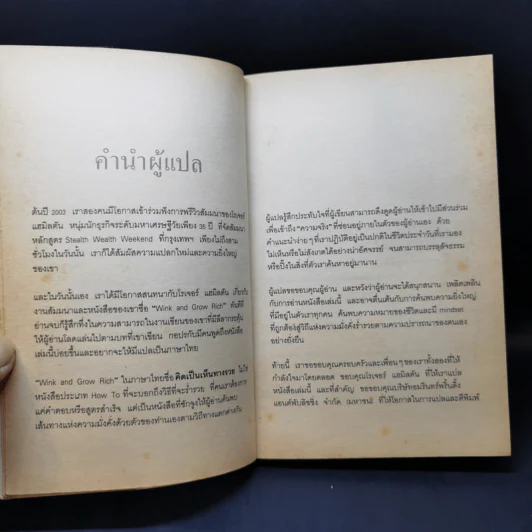 คำนำผู้แปล
ต้นปี 2003 เราสองคนมีโอกาสเข้าร่วมฟังการพรีวิวสัมมนาของโรเจอร์
แฮมิลตัน หนุ่มนักธุรกิจระดับมหาเศรษฐีวัยเพียง 35 ปี ที่จัดสัมมนา
หลักสูตร Stealth Wealth Weekend ที่กรุงเทพฯ เพียงไม่ถึงสาม
ชั่วโมงในวันนั้น เราก็ได้สัมผัสความแปลกใหม่และความยิ่งใหญ่
ของเขา
และในวันนั้นเอง เราได้มีโอกาสสนทนากับโรเจอร์ แฮมิลตัน เกี่ยวกับ
งานสัมมนาและหนังสือของเขาชื่อ "Wink and Grow Rich" ทันทีที่
อ่านจบก็รู้สึกทึ่งในความสามารถในงานเขียนของเขาที่มีลีลากระตุ้น
ให้ผู้อ่านโลดแล่นไปตามบทที่เขาเขียน กอปรกับมีคนพูดถึงหนังสือ
เล่มนี้บ่อยขึ้นและอยากจะให้มีแปลเป็นภาษาไทย
"Wink and Grow Rich" ในภาษาไทยชื่อ คิดเป็นเห็นทางรวย ไม่ใช่
หนังสือประเภท How To ที่จะบอกถึงวิธีที่จะร่ำรวย ที่คนเราต้องการ
แค่คำตอบหรือสูตรสำเร็จ แต่เป็นหนังสือที่ชักจูงให้ผู้อ่านค้นพบ
เส้นทางแห่งความมั่งคั่งด้วยตัวของท่านเองตามวิถีทางแตกต่างกัน
ผู้แปลรู้สึกประทับใจที่ผู้เขียนสามารถดึงดูดผู้อ่านให้เข้าไปมีส่วนร่วม
เพื่อเข้าถึง "ความจริง" ที่ซ่อนอยู่ภายในตัวของผู้อ่านเอง ด้วย
คำแนะนำง่าย ๆ ที่เราปฏิบัติอยู่เป็นปกติในชีวิตประจำวันที่เรามอง
ไม่เห็นหรือไม่สังเกตได้อย่างน่าอัศจรรย์ จนสามารถบรรลุสัจธรรม
หรือปิ๊งในสิ่งที่ตัวเราค้นหาอยู่มานาน
ผู้แปลขอขอบคุณผู้อ่าน และหวังว่าผู้อ่านจะได้สนุกสนาน เพลิดเพลิน
กับการอ่านหนังสือเล่มนี้ และอาจตื่นเต้นกับการค้นพบความยิ่งใหญ่
ที่มีอยู่ในตัวเราทุกคน ค้นพบความหมายของชีวิตและมี mindset
ที่ถูกต้องสู่วิถีแห่งความมั่งคั่งร่ำรวยตามความปรารถนาของตนเอง
อย่างยั่งยืน
ท้ายนี้ เราขอขอบคุณครอบครัวและเพื่อน ๆ ของเราทั้งสองที่ให้
กำลังใจมาโดยตลอด ขอบคุณโรเจอร์ แฮมิลตัน ที่ให้เราแปล
หนังสือเล่มนี้ และที่สำคัญ ขอขอบคุณบริษัทอมรินทร์พริ้นติ้ง
แอนด์พับลิชชิ่ง จำกัด (มหาชน) ที่ให้โอกาสในการแปลและตีพิมพ์